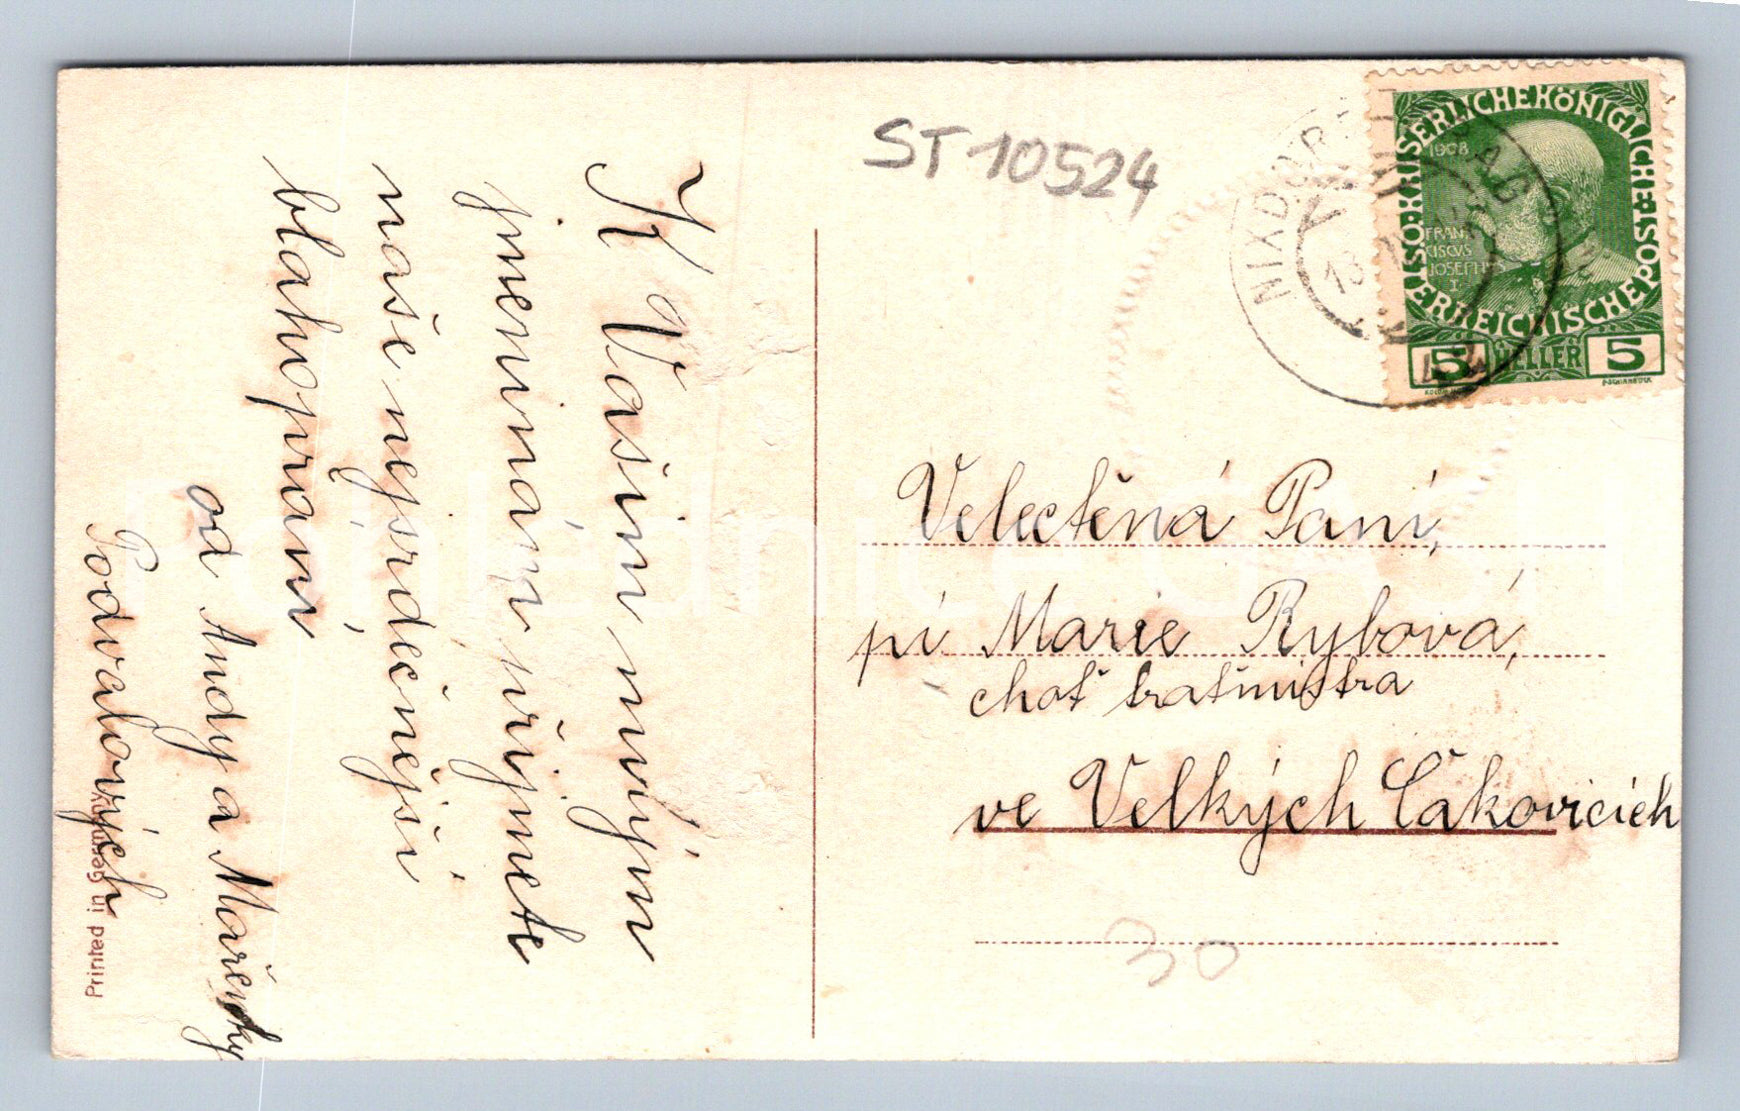 K Vašim milým
jmeninám přijmete
naše nejsrdečnější
blahopřání
od Andy a Mařenky
Podvalových
Printed in Germany
ST 10524
NIXDORF
13
KAISERLICHE KÖNIGLICHE ÖSTERREICHISCHE POST
1908
FRAN
CISCVS
JOSEPHVS
I
5 HELLER 5
Velectěná Paní,
pí Marie Rybová,
choť tratmistra
ve Velkých Čakovicích
30